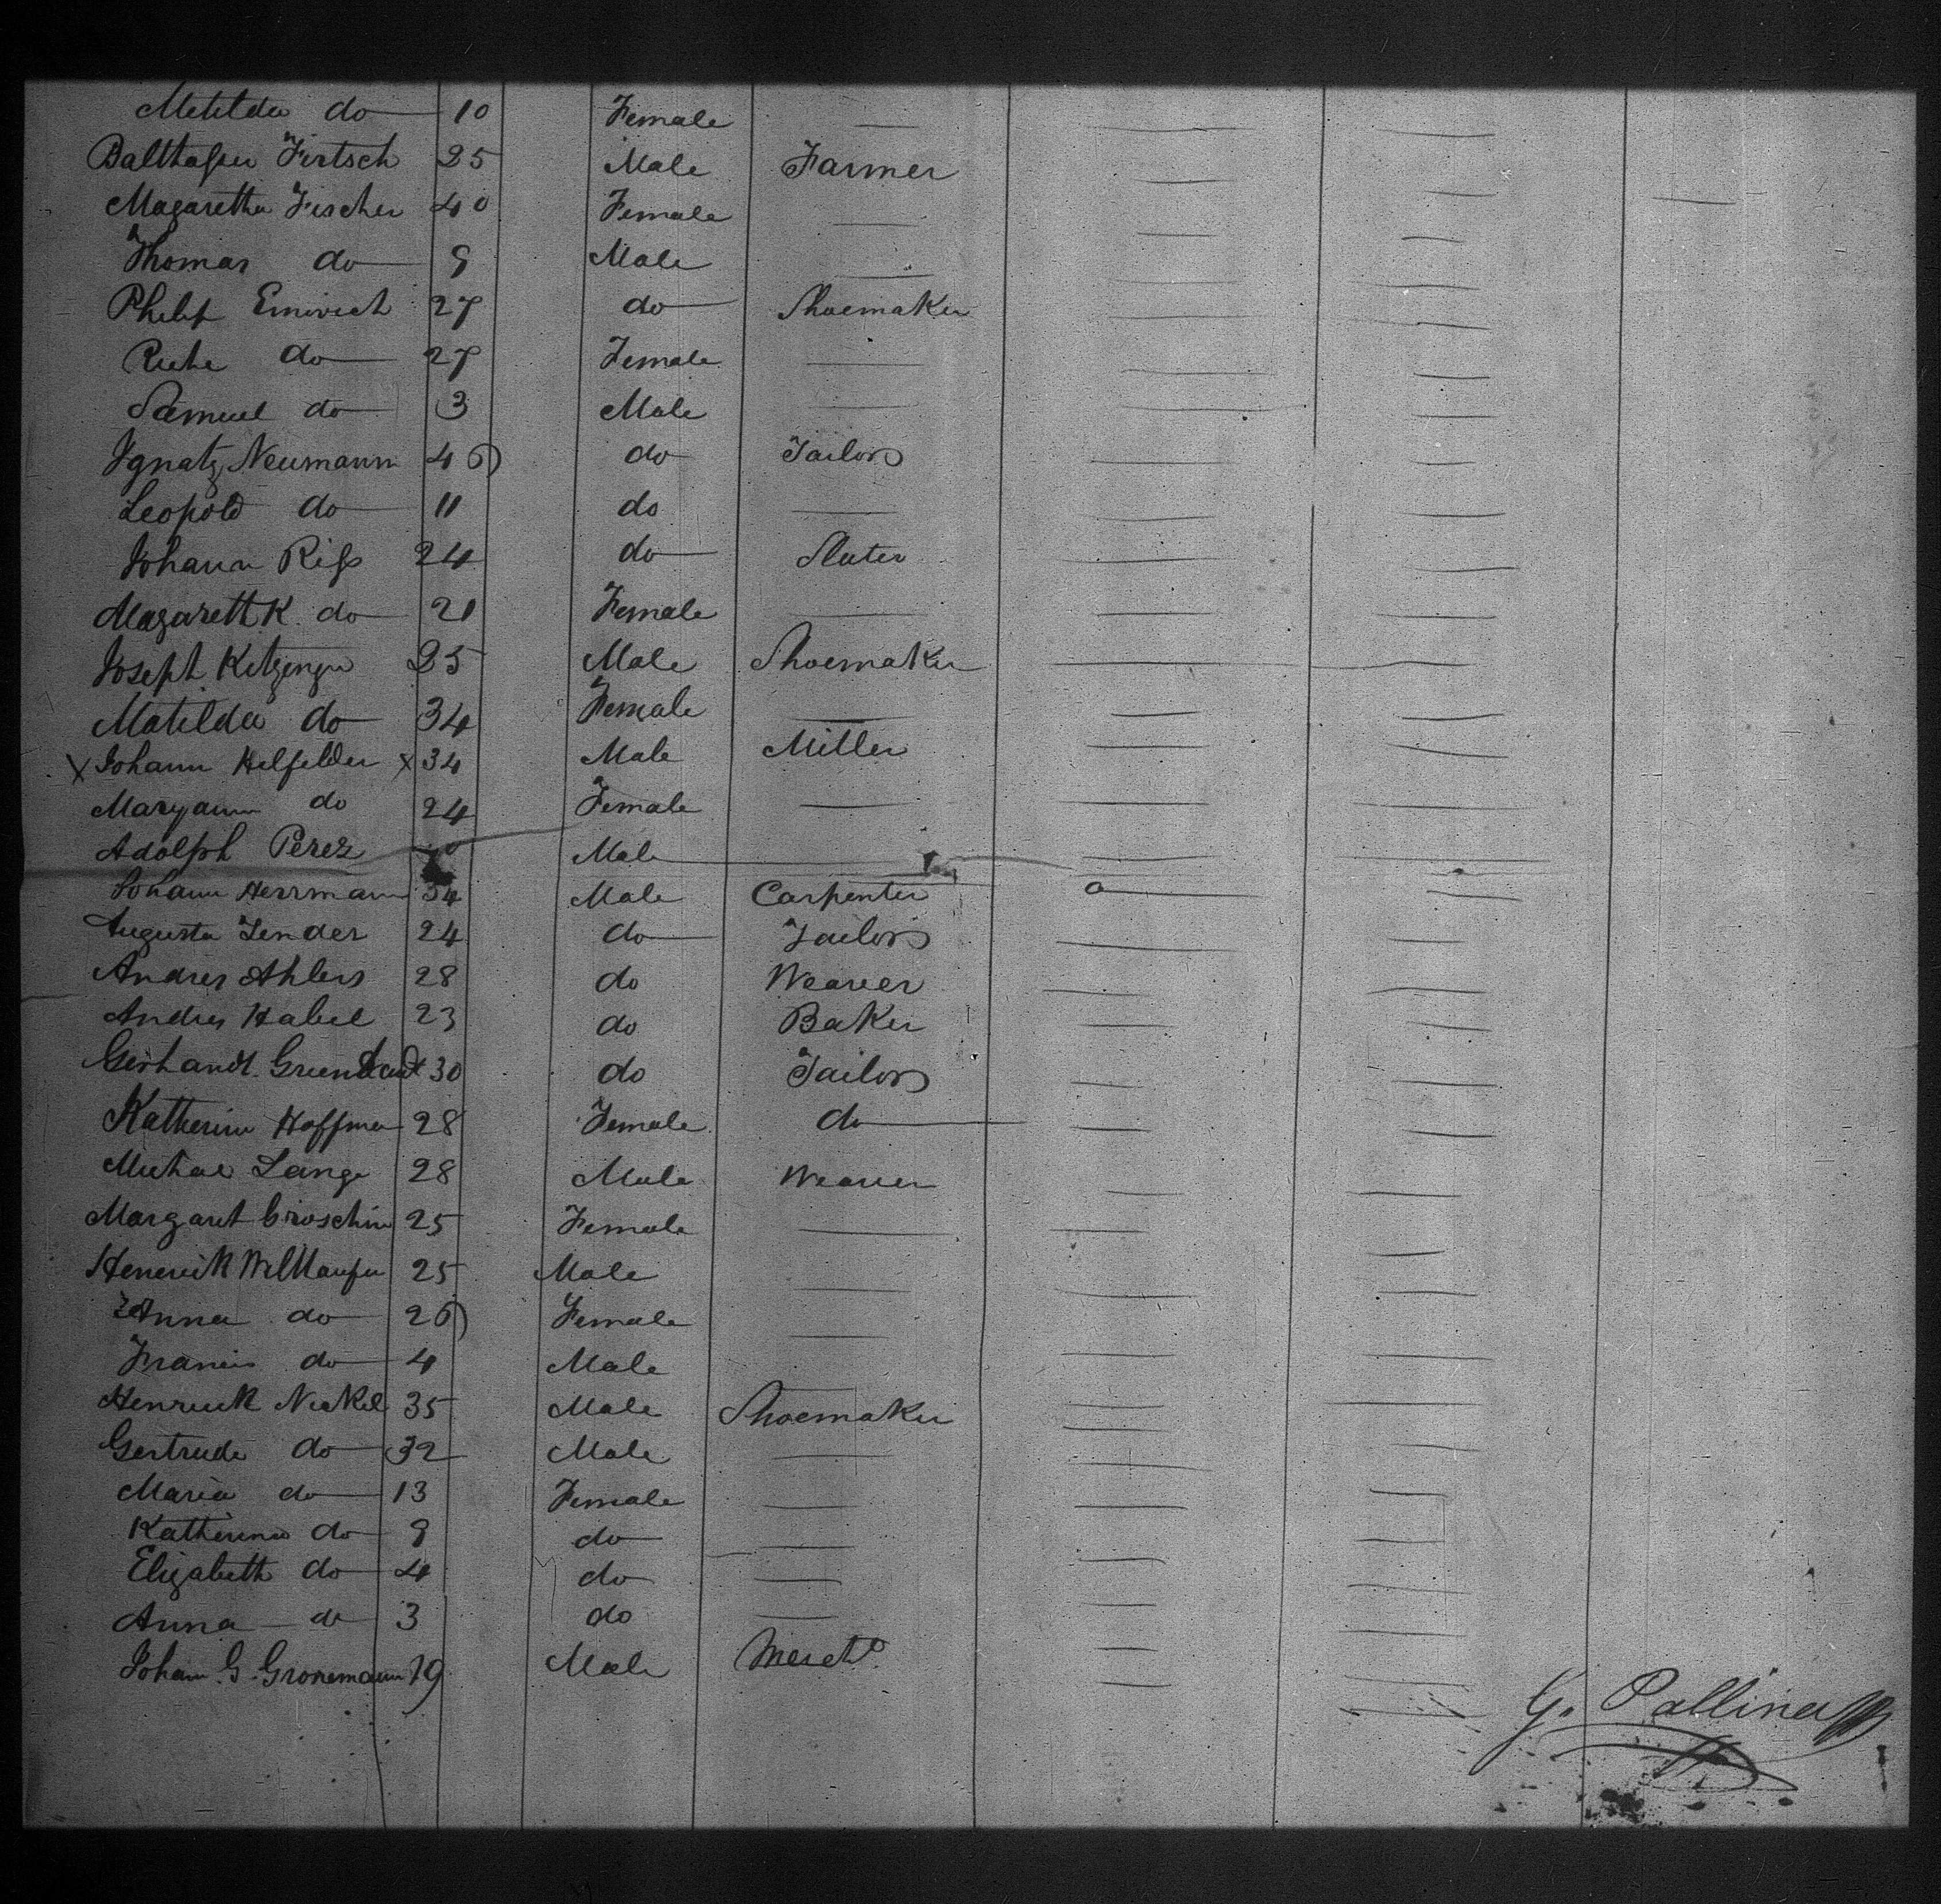 Matilda do 10 Female
Balthaser Firtsch 25 Male Farmer
Magaretha Fischer 40 Female
Thomas do 9 Male
Philip Emirich 27 do Shoemaker
do 27 Female
Samuel do 3 Male
Ignatz Neumann 46 do Tailor
Leopold do 11 do
Johann Riss 24 do Slater
Magareth K. do 21 Female
Joseph Kitzinger 25 Male Shoemaker
Matilda do 34 Female
X Johann Helfelder X 34 Male Miller
Maryann do 24 Female
Adolph Perez Male
Johann Herrmann 34 Male Carpenter
Augusta Zender 24 do Tailor
Andres Ahlers 28 do Weaver
Andres Habel 23 do Baker
Gerhardt 30 do Tailor
Katherina Hoffman 28 Female do
Michael Lange 28 Male Weaver
Margaret 25 Female
Henerick 25 Male
Anna do 26 Female
Francis do 4 Male
Henrick Nickel 35 Male Shoemaker
Gertrude do 32 Male
Maria do 13 Female
Katherina do 9 do
Elizabeth do 4 do
Anna do 3 do
Johann G. Gronemann 19 Male Mercht
G. Pallina